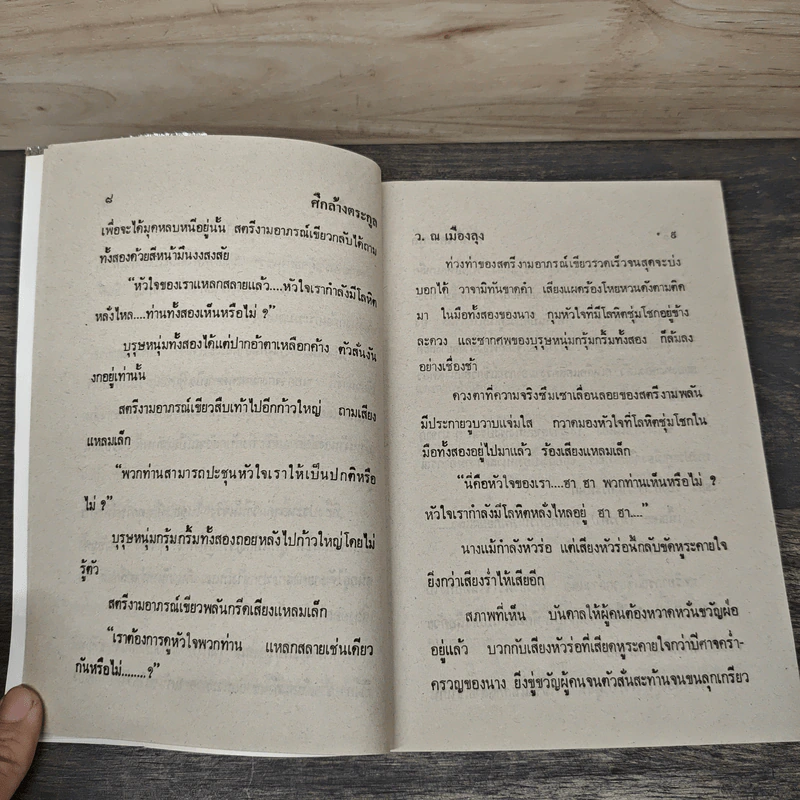 ๘
ศึกล้างตระกูล
เพื่อจะได้มุดหลบหนีอยู่นั้น สตรีงามอาภรณ์เขียวกลับได้ถาม
ทั้งสองด้วยสีหน้ามึนงงสงสัย
“หัวใจของเราแหลกสลายแล้ว....หัวใจเรากำลังมีโลหิต
หลั่งไหล....ท่านทั้งสองเห็นหรือไม่ ?”
บุรุษหนุ่มทั้งสองได้แต่ปากอ้าตาเหลือกค้าง ตัวสั่นงัน
งกอยู่เท่านั้น
สตรีงามอาภรณ์เขียวสืบเท้าไปอีกก้าวใหญ่ ถามเสียง
แหลมเล็ก
“พวกท่านสามารถปะชุนหัวใจเราให้เป็นปกติหรือ
ไม่ ?”
บุรุษหนุ่มกรุ้มกริ้มทั้งสองถอยหลังไปก้าวใหญ่โดยไม่
รู้ตัว
สตรีงามอาภรณ์เขียวพลันกรีดเสียงแหลมเล็ก
“เราต้องการดูหัวใจพวกท่าน แหลกสลายเช่นเดียว
กันหรือไม่........?”
ว. ณ เมืองลุง
๙
ท่วงท่าของสตรีงามอาภรณ์เขียวรวดเร็วจนสุดจะบ่ง
บอกได้ วาจามิทันขาดคำ เสียงแผดร้องโหยหวนดังตามติด
มา ในมือทั้งสองของนาง กุมหัวใจที่มีโลหิตชุ่มโชกอยู่ข้าง
ละดวง และซากศพของบุรุษหนุ่มกรุ้มกริ้มทั้งสอง ก็ล้มลง
อย่างเชื่องช้า
ดวงตาที่ความจริงซึมเซาเลื่อนลอยของสตรีงามพลัน
มีประกายวูบวาบแจ่มใส กวาดมองหัวใจที่โลหิตชุ่มโชกใน
มือทั้งสองอยู่ไปมาแล้ว ร้องเสียงแหลมเล็ก
“นี่คือหัวใจของเรา....ฮา ฮา พวกท่านเห็นหรือไม่ ?
หัวใจเรากำลังมีโลหิตหลั่งไหลอยู่ ฮา ฮา....”
นางแม้กำลังหัวร่อ แต่เสียงหัวร่อนี้กลับขัดหูระคายใจ
ยิ่งกว่าเสียงร่ำไห้เสียอีก
สภาพที่เห็น บันดาลให้ผู้คนต้องหวาดหวั่นขวัญผ่อ
อยู่แล้ว บวกกับเสียงหัวร่อที่เสียดหูระคายใจกว่าปีศาจคร่ำ-
ครวญของนาง ยิ่งขู่ขวัญผู้คนจนตัวสั่นสะท้านจนขนลุกเกรียว